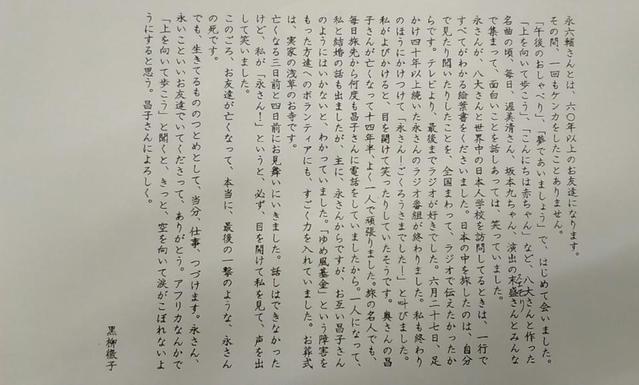 永六輔さんとは、六〇年以上のお友達になります。
その間、一回もケンカをしたことありません。
「午後のおしゃべり」、「夢であいましょう」で、はじめて会いました。
「上を向いて歩こう」、「こんにちは赤ちゃん」など、八大さんと作った
名曲の頃、毎日、渥美清さん、坂本九ちゃん、演出の末盛さんとみんな
で集まって、面白いことを話しあっては、笑っていました。
永さんが、八大さんと世界中の日本人学校を訪問してるときは、一行で
すべてがわかる絵葉書をくださいました。日本の中を旅したのは、自分
で見たり聞いたりしたことを、全国まわって、ラジオで伝えたかったか
らです。テレビより、最後までラジオが好きでした。六月二十七日、足
かけ四十年以上続いた永さんのラジオ番組が終わりました。私も終わり
のほうにかけつけて、「永さーん!ごくろうさまでしたー!」と叫びました。
私がよびかけると、目を開けて笑ったりしていたそうです。奥さんの昌
子さんが亡くなって十四年半、よく一人で頑張りました。旅の名人でも、
毎日旅先から何度も昌子さんに電話をしていましたから。一人になって、
私と結婚の話も出ましたが、主に、永さんからですが、お互い昌子さん
のようにはいかないと、わかっていました。「ゆめ風基金」という障害を
もった方達へのボランティアにも、すごく力を入れていました。お葬式
は、実家の浅草のお寺です。
亡くなる三日前と四日前にお見舞いにいきました。話しはできなかった
けど、私が「永さん!」というと、必ず、目を開けて私を見て、声を出
して笑いました。
このごろ、お友達が亡くなって、本当に、最後の一撃のような、永さん
の死です。
でも、生きてるもののつとめとして、当分、仕事、つづけます。永さん、
永いこといいお友達でいてくださって、ありがとう。アフリカなんかで
「上を向いて歩こう」と聞くと、きっと、空を向いて涙がこぼれないよ
うにすると思う。昌子さんによろしく。
黒柳徹子